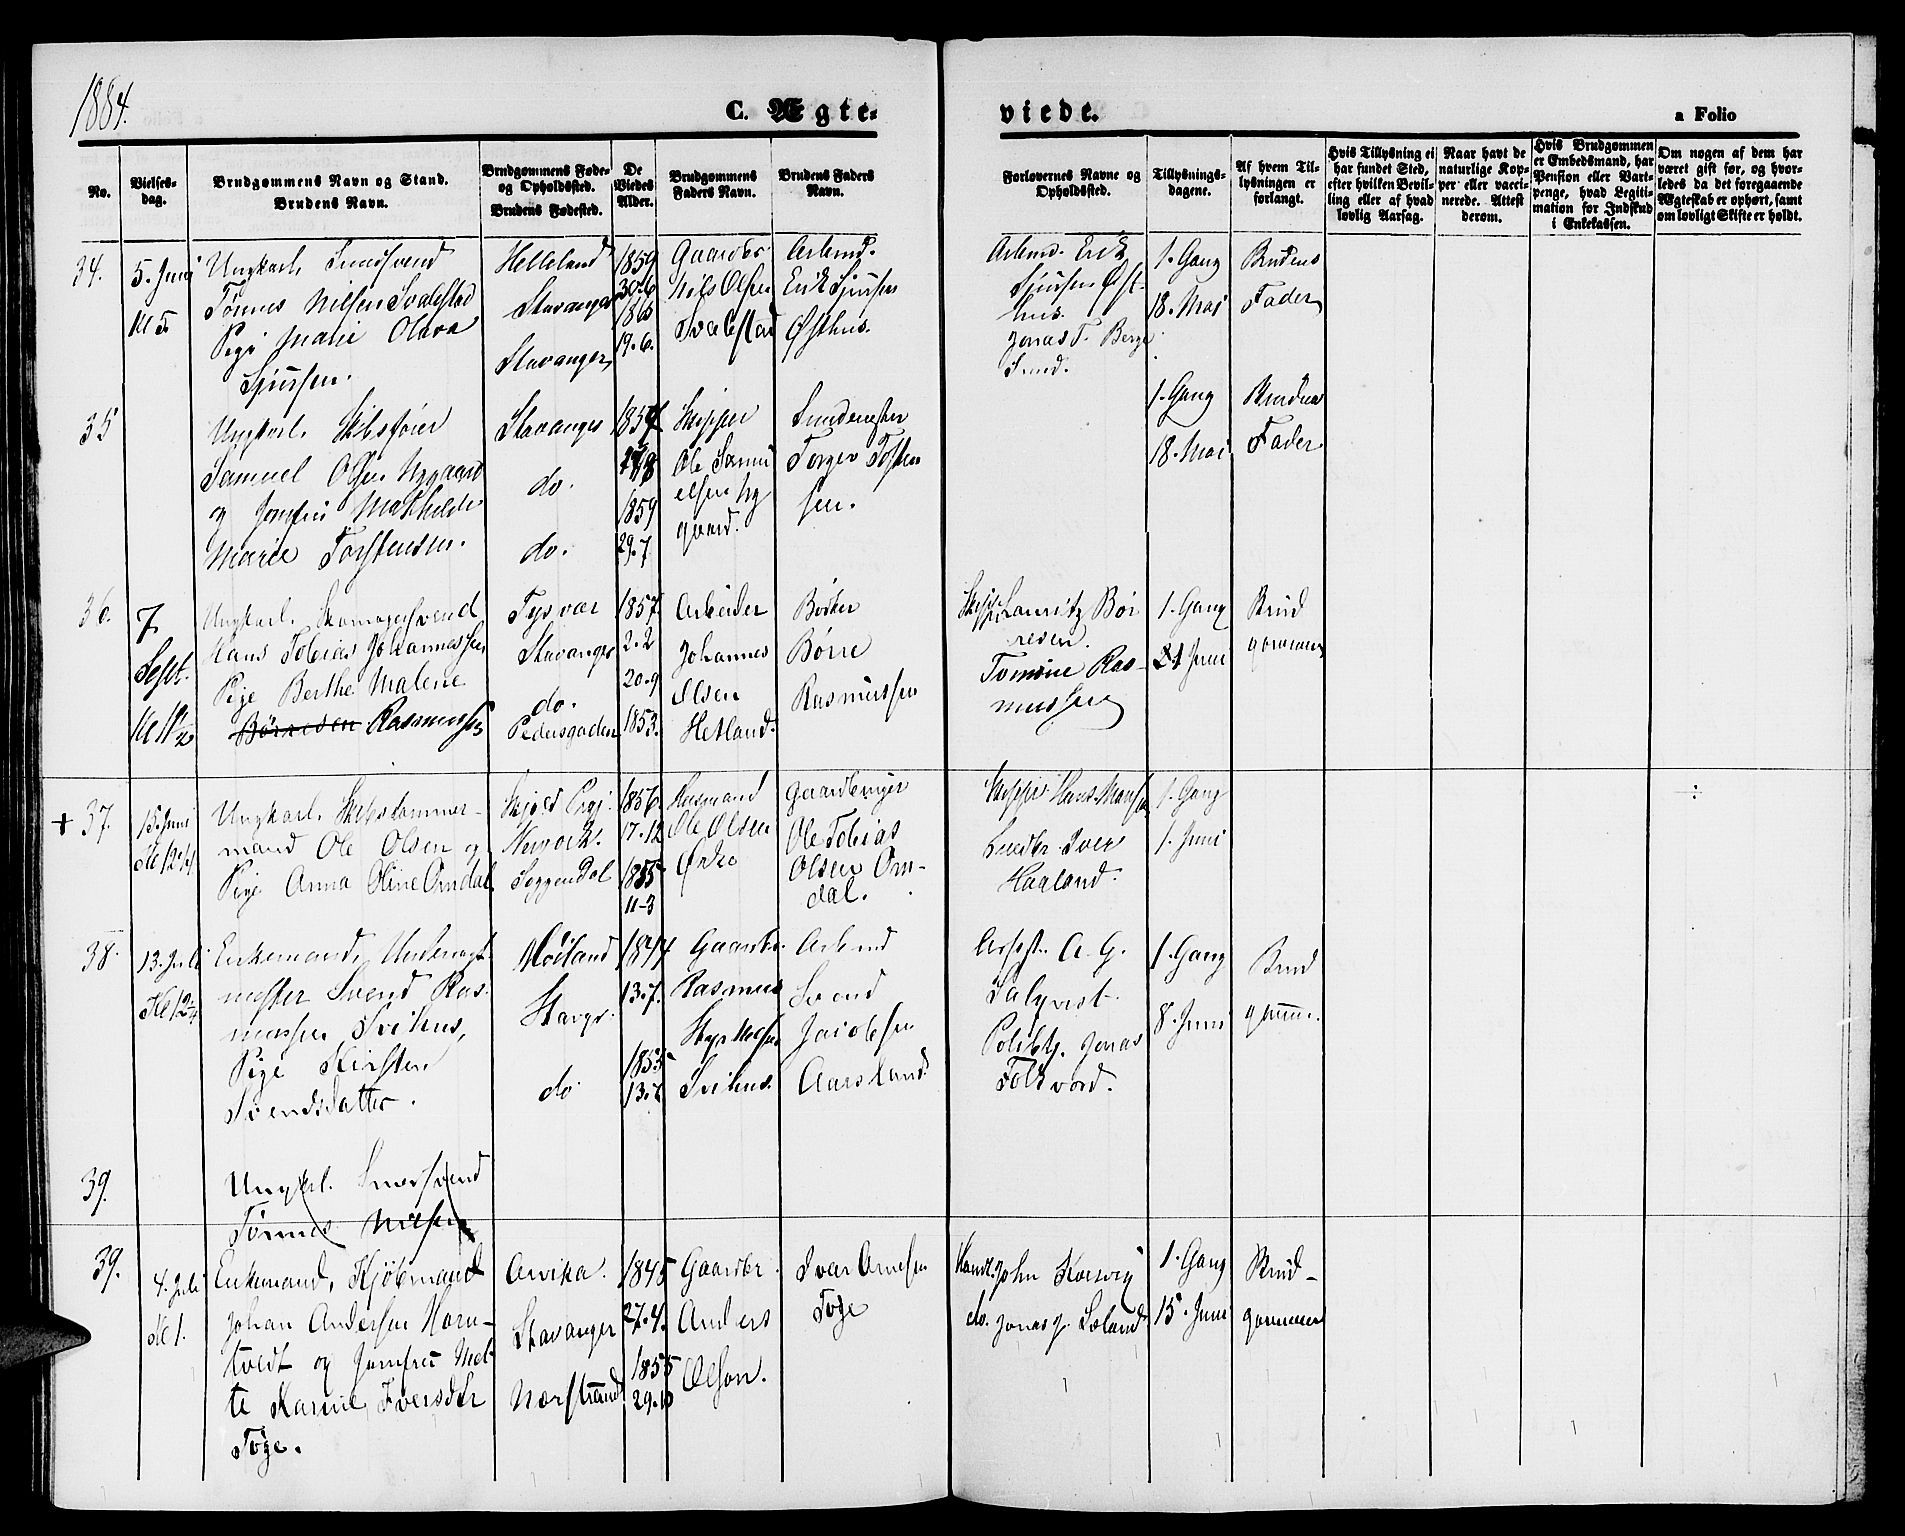 1884.
C. Ægte-
viede.
a Folio
No.
Vielses-
dag.
Brudgommens Navn og Stand.
Brudens Navn.
Brudgommens Føde-
og Opholdssted.
Brudens Fødested.
De
Viedes
Alder.
Brudgommens
Faders Navn.
Brudens Faders
Navn.
Forlovernes Navne og
Opholdssted.
Tillysnings-
dagene.
Af hvem Til-
lysningen er
forlangt.
Hvis Tillysning ei
har fundet Sted,
efter hvilken Bevil-
ling eller af hvad
lovlig Aarsag.
Naar havt de
naturlige Kop-
per eller vacci-
nerede. Attest
derom.
Hvis Brudgommen
er Embedsmand, har
Pension eller Vart-
penge, hvad Legiti-
mation for Indskud
i Enkekassen.
Om nogen af dem har
været gift før, og hvor-
ledes da det foregaaende
Ægteskab er ophørt, samt
om lovligt Skifte er holdt.
34.
5. Juni
Kl 5
Ungkarl
Tønnes Nilsen Svalestad
Pige Malie Olava
Sjursen.
Helleland
Stavanger
Stavanger
1859
30.6
186
19.6.
Gaardbr
Nils Olsen
Svalestad
Arbmd.
Erik Sjursen
Østhus.
Arbmd. Erik
Sjursen Øst-
hus.
Jonas T. Berge
1. Gang
18. Mai
Brudens
Fader
35
Ungkarl. Skibsfører
Samuel Olsen Nygaard
og Jomfru Mathilde
Marie Torstensen.
Stavanger
do.
do.
1859
29.7
Skipper
Ole Samu
elsen Ny
gaard.
Torger Torsten
sen.
1. Gang
18. Mai
Brudens
Fader
36.
7
Sept.
Kl
Ungkarl. Skomagersvend
Hans Tobias Johannessen
Pige Berthe Malene
Børresen Rasmussen
Tysvær
Stavanger
do.
Pedersgaden
1857.
2.2
20.9
1853.
Arbeider
Johannes
Olsen
Hetland.
Bødker
Børre
Rasmussen
Skipper Lauritz Bør
resen.
Tomine Ras-
mussen
1. Gang
21 Juni
Brud
gommen
+ 37.
15. Juni
Kl 12 1/4
Ungkarl. Skibstømmer-
mand Ole Olsen og
Pige Anna Oline Omdal
Skjold
Soggendal
1856.
17.12
1855
11-3
Husmand
Ole Olsen
Gaardbruger
Ole Tobias
Olsen Om-
dal.
Skipper Hans Hansen
Snedkr. Iver
Haaland.
1. Gang
1. Juni
÷
38.
13. Juli
Enkemand,
mester Svend Ras-
mussen Svihus,
Pige Kirsten
Svendsdatter.
Møiland
Stavgr.
do
1844
13.7.
1853
Gaardbr.
Rasmus
Svihus.
Arbmd
Svend
Jacobsen
Aarsland.
A. G.
Salqvist.
Politib. Jonas
Folkvord.
1. Gang
8. Juni
Brud
gomm.
39.
Ungkrl.
Tønnes Nilsen
39.
4. Juli
Kl 1.
Enkemand, Kjøbmand
Johan Andersen Horn-
tvedt og Jomfru Met-
te Karine Iversdtr
Tøge.
Arvika.
Stavanger
Nærstrand
1845
27.4.
1855
29.10
Gaardbr.
Anders
Olson.
Ivar Arnesen
Tøge
Handl. John Korsvig
do. Jonas J. Løland
1. Gang
15. Juni
Brud-
gommen